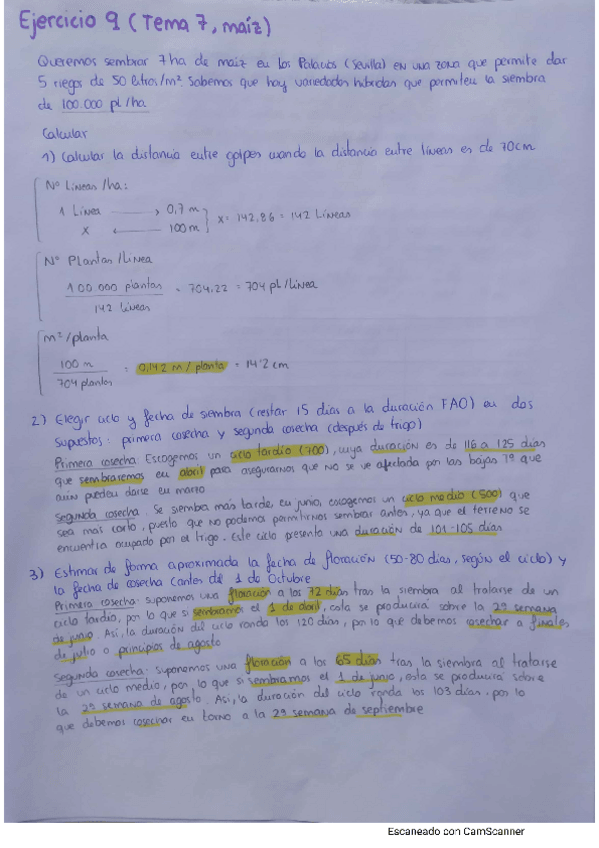 Ejercicio 9 (Tema 7, maíz)
Queremos sembrar 7 ha de maiz en Los Palacios (Sevilla) en una zona que permite dar
5 riegos de 50 litros/m². Sabemos que hay variedades hibridas que permiten la siembra
de 100.000 pl/ha
Calcular
1) Calcular la distancia entre golpes cuando la distancia entre lineas es de 70cm
Nº Lineas/ha:
1 Linea → 0,7 m
x ← 100 m
x = 142,86 = 142 Lineas
Nº Plantas/Linea
100 000 plantas / 142 lineas = 704,22 = 704 pl/linea
m²/planta
100 m / 704 plantas = 0,142 m/planta = 14'2 cm
2) Elegir ciclo y fecha de siembra (restar 15 dias a la duración FAO) en dos
supuestos: primera cosecha y segunda cosecha (después de trigo)
Primera cosecha. Escogemos un ciclo tardío (700), cuya duración es de 116 a 125 dias
que sembraremos en abril para asegurarnos que no se ve afectada por las bajas Tª que
aún pueden darse en marzo
Segunda cosecha. Se siembra más tarde, en junio, escogemos un ciclo medio (500) que
sea más corto, puesto que no podemos permitirnos sembrar antes, ya que el terreno se
encuentra ocupado por el trigo. Este ciclo presenta una duración de 101-105 días
3) Estimar de forma aproximada la fecha de floración (50-80 dias, según el ciclo) y
la fecha de cosecha (antes del 1 de Octubre
Primera cosecha: suponemos una floración a los 72 días tras la siembra al tratarse de un
ciclo tardío, por lo que si sembramos el 1 de abril, esta se producirá sobre la 2ª semana
de junio. Así, la duración del ciclo ronda los 120 dias, por lo que debemos cosechar a finales
de julio o principios de agosto
Segunda cosecha: suponemos una floración a los 65 dias tras la siembra al tratarse
de un ciclo medio, por lo que si sembramos el 1 de junio, esta se producirá sobre
la 2ª semana de agosto. Así, la duración del ciclo ronda los 103 días, por lo
que debemos cosechar en torno a la 2ª semana de septiembre
Escaneado con CamScanner